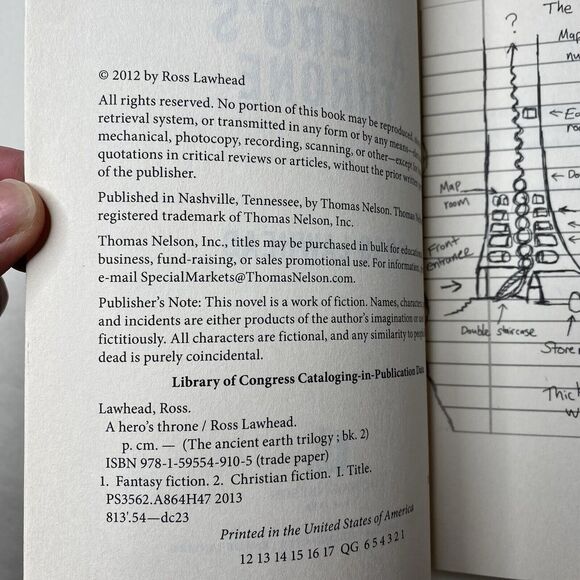 © 2012 by Ross Lawhead
All rights reserved. No portion of this book may be reproduced,
retrieval system, or transmitted in any form or by any means—
mechanical, photocopy, recording, scanning, or other—except for
quotations in critical reviews or articles, without the prior written
of the publisher.
Published in Nashville, Tennessee, by Thomas Nelson. Thomas
registered trademark of Thomas Nelson, Inc.
Thomas Nelson, Inc., titles may be purchased in bulk for
business, fund-raising, or sales promotional use. For information,
e-mail SpecialMarkets@ThomasNelson.com.
Publisher's Note: This novel is a work of fiction. Names,
and incidents are either products of the author's imagination or
fictitiously. All characters are fictional, and any similarity to
dead is purely coincidental.
Library of Congress Cataloging-in-Publication
Lawhead, Ross.
A hero's throne / Ross Lawhead.
p. cm. — (The ancient earth trilogy ; bk. 2)
ISBN 978-1-59554-910-5 (trade paper)
1. Fantasy fiction. 2. Christian fiction. I. Title.
PS3562.A864H47 2013
813'.54—dc23
Printed in the United States of America
12 13 14 15 16 17 QG 6 5 4 3 2 1
The
?
Map
Map
room
Front
entrance
Double staircase
Store